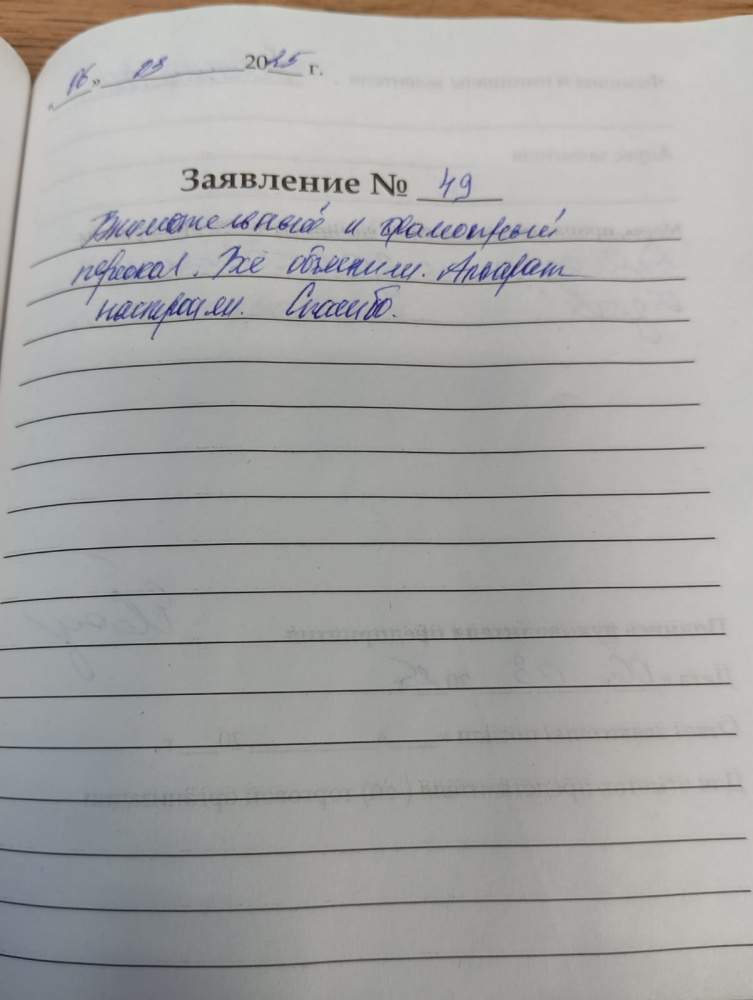 «16» 03 2025 г.
Заявление № 49
Внимательный и грамотный
персонал. Всё объяснили. Аппарат
настроили. Спасибо.